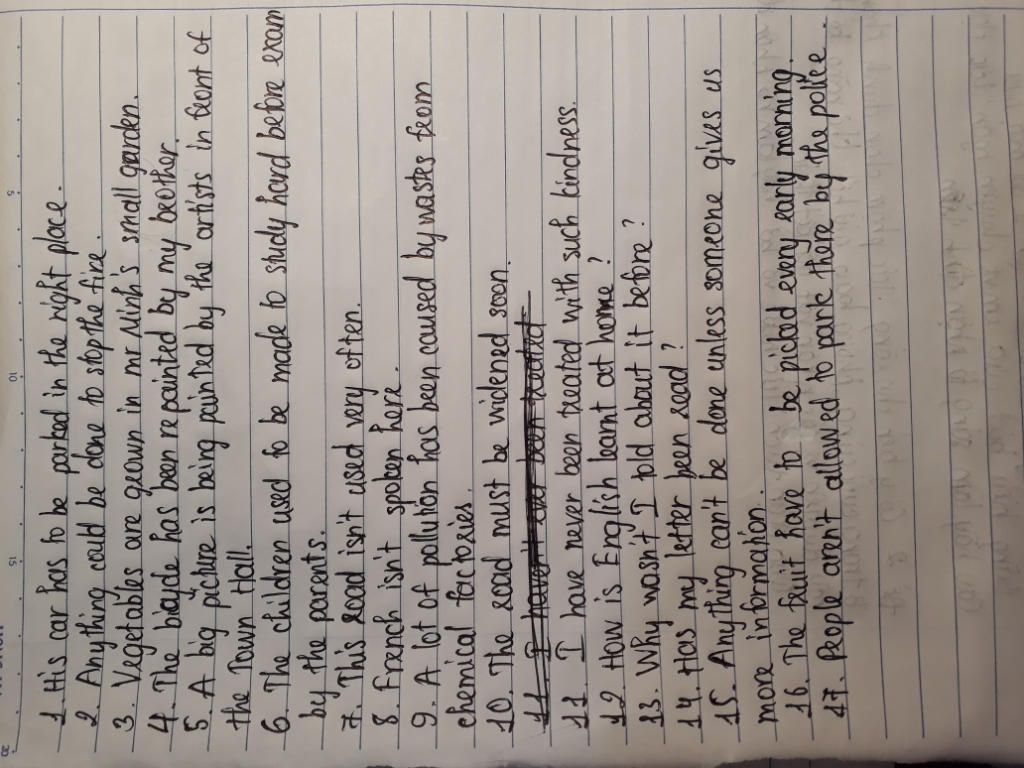 1. His car has to be parked in the right place.
2. Anything could be done to stop the fire.
3. Vegetables are grown in mr Minh's small granden.
4. The bicycle has been repainted by my brother.
5. A big picture is being painted by the artists in front of
the Town Hall.
6. The children used to be made to study hard before exam
by the parents.
7. This road isn't used very often.
8. French isn't spoken here.
9. A lot of pollution has been caused by wastes from
chemical factories.
10. The road must be widened soon.
11. I have never been treated with such kindness.
12. How is English learnt at home?
13. Why wasn't I told about it before?
14. Has my letter been read?
15. Anything can't be done unless someone gives us
more information.
16. The fruit have to be picked every early morning.
17. People aren't allowed to park there by the police.